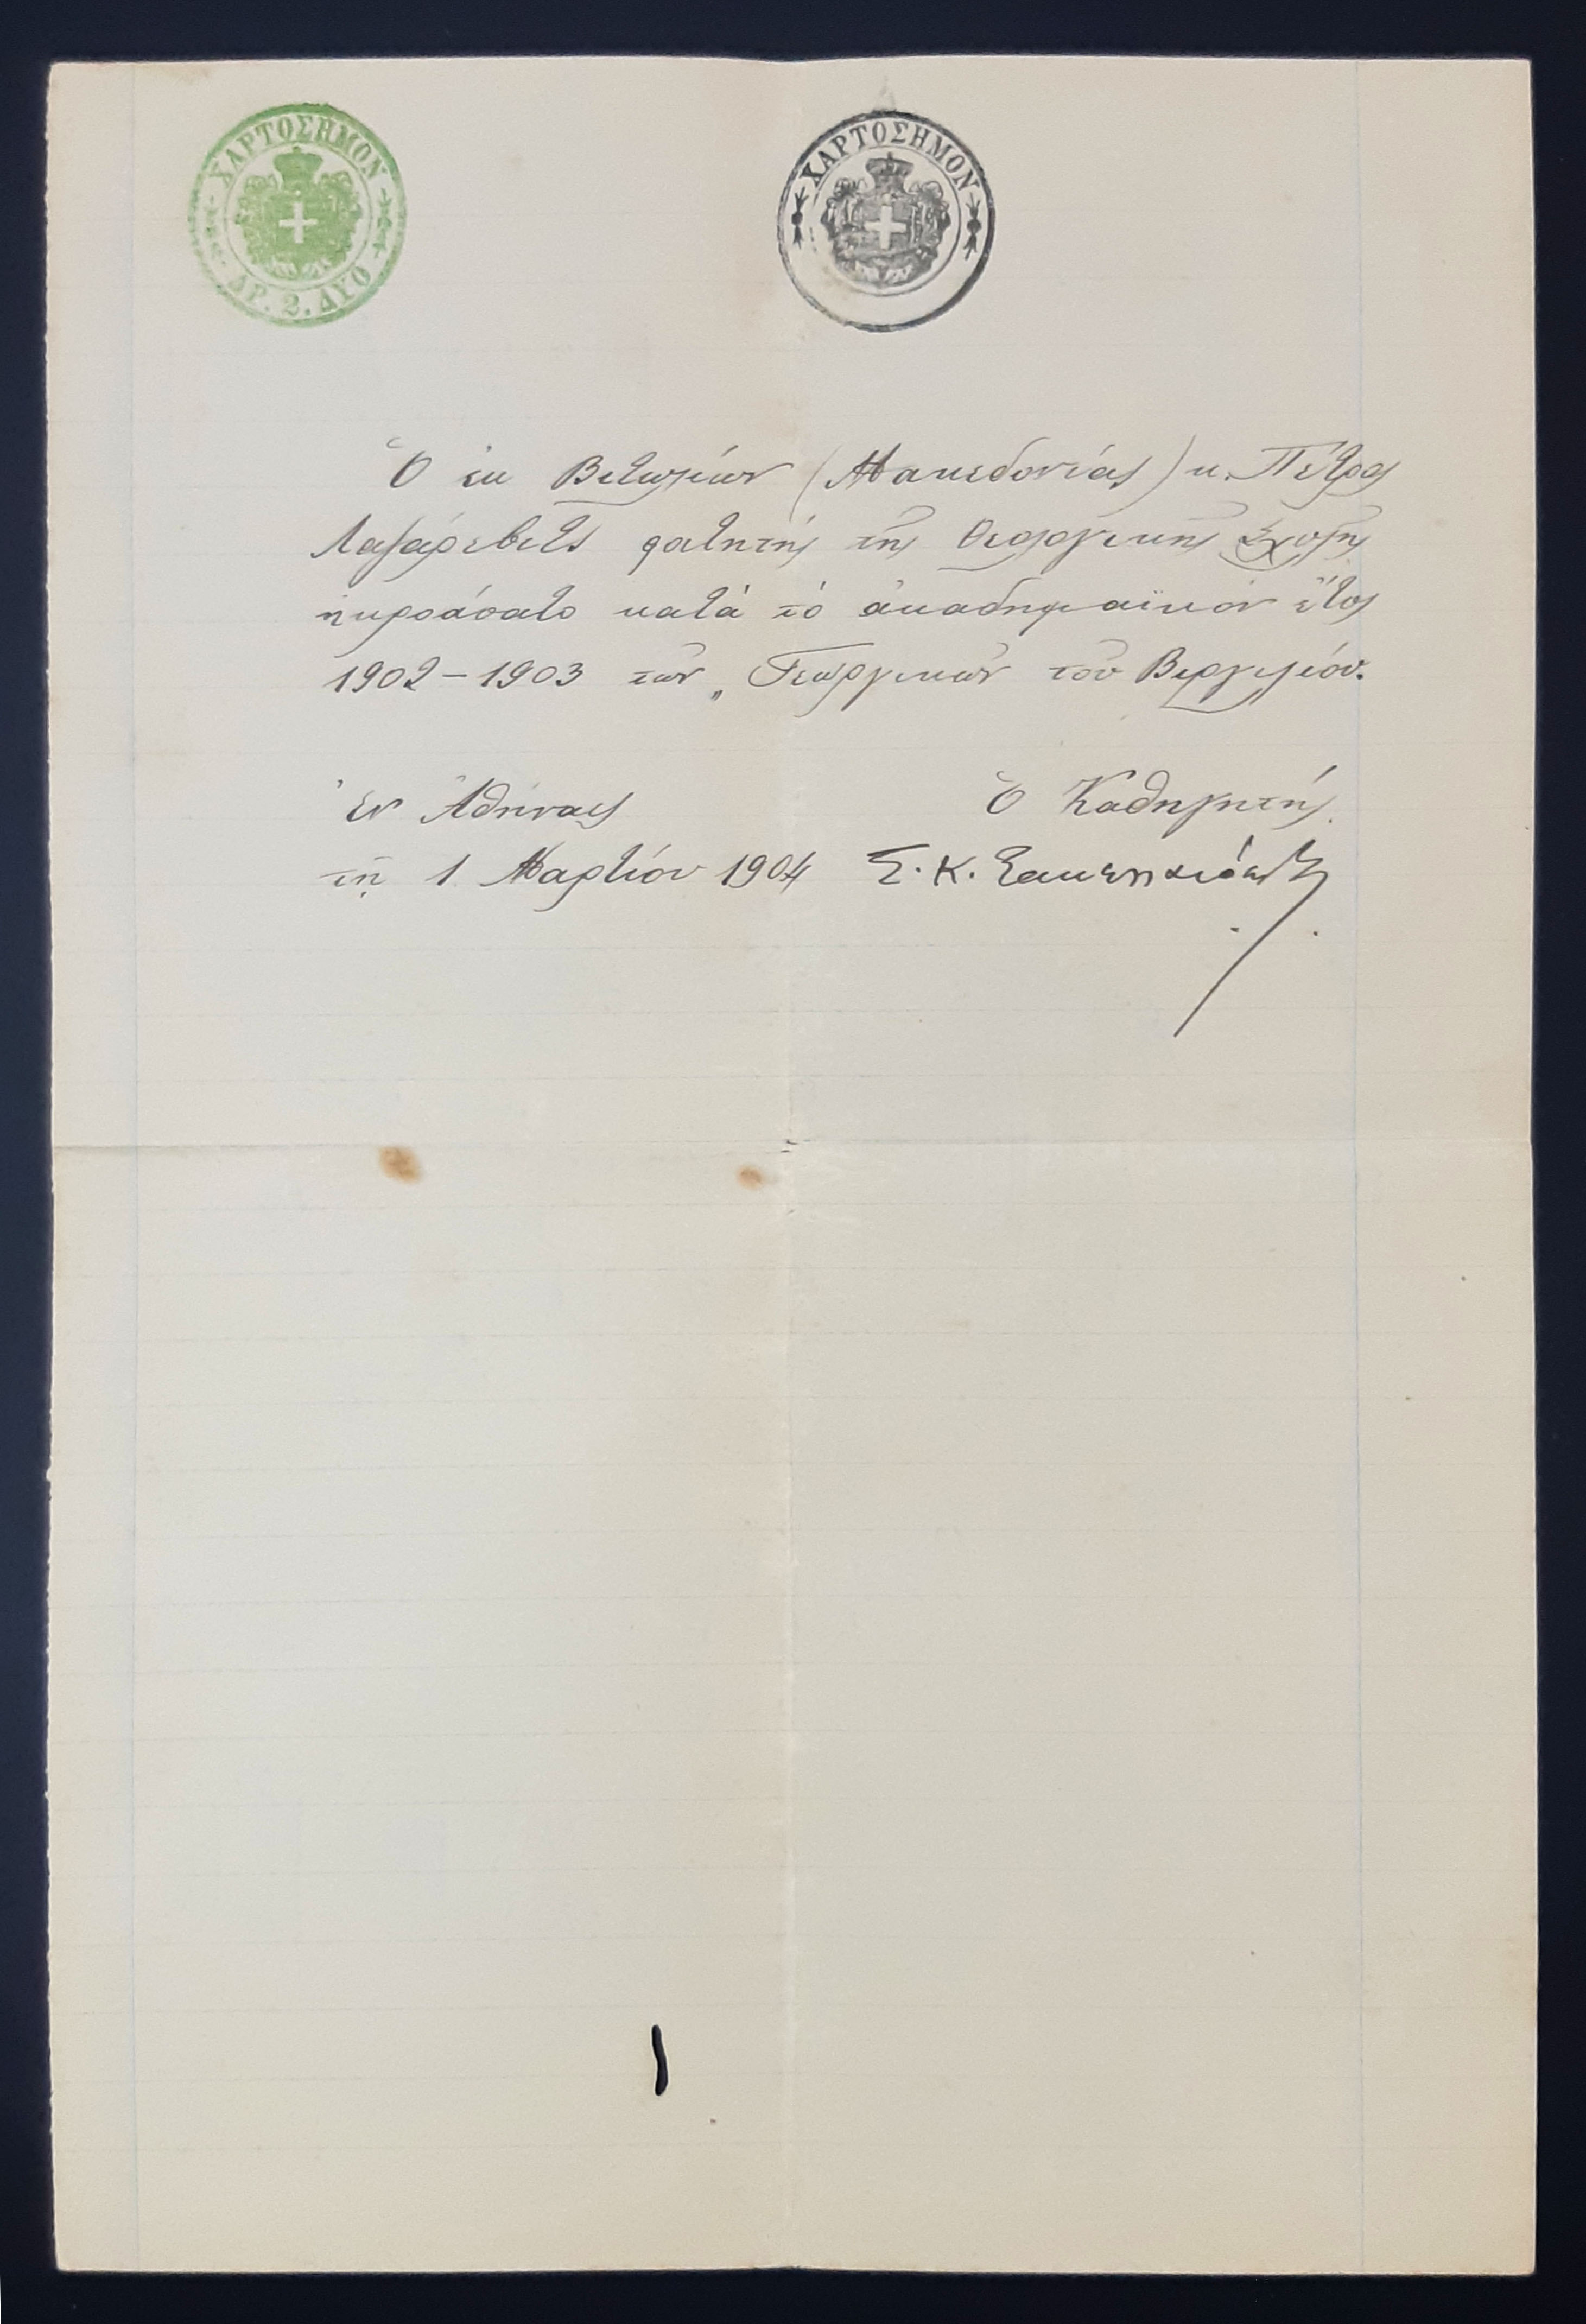 ΧΑΡΤΟΣΗΜΟΝ
ΔΡ. 2. ΔΥΟ
ΧΑΡΤΟΣΗΜΟΝ
Ὁ ἐκ Βιτωλίων (Μακεδονίας) κ. Πέτρος
Λαζάρεβιτς φοιτητής τῆς Θεολογικῆς Σχολῆς
ἠκροάσατο κατά τό ἀκαδημαϊκόν ἔτος
1902-1903 τῶν „Γεωργικῶν τοῦ Βιργιλίου.
Ἐν Ἀθήναις
τῇ 1 Μαρτίου 1904
Ὁ Καθηγητής
Σ. Κ. Σακελλαρόπουλος